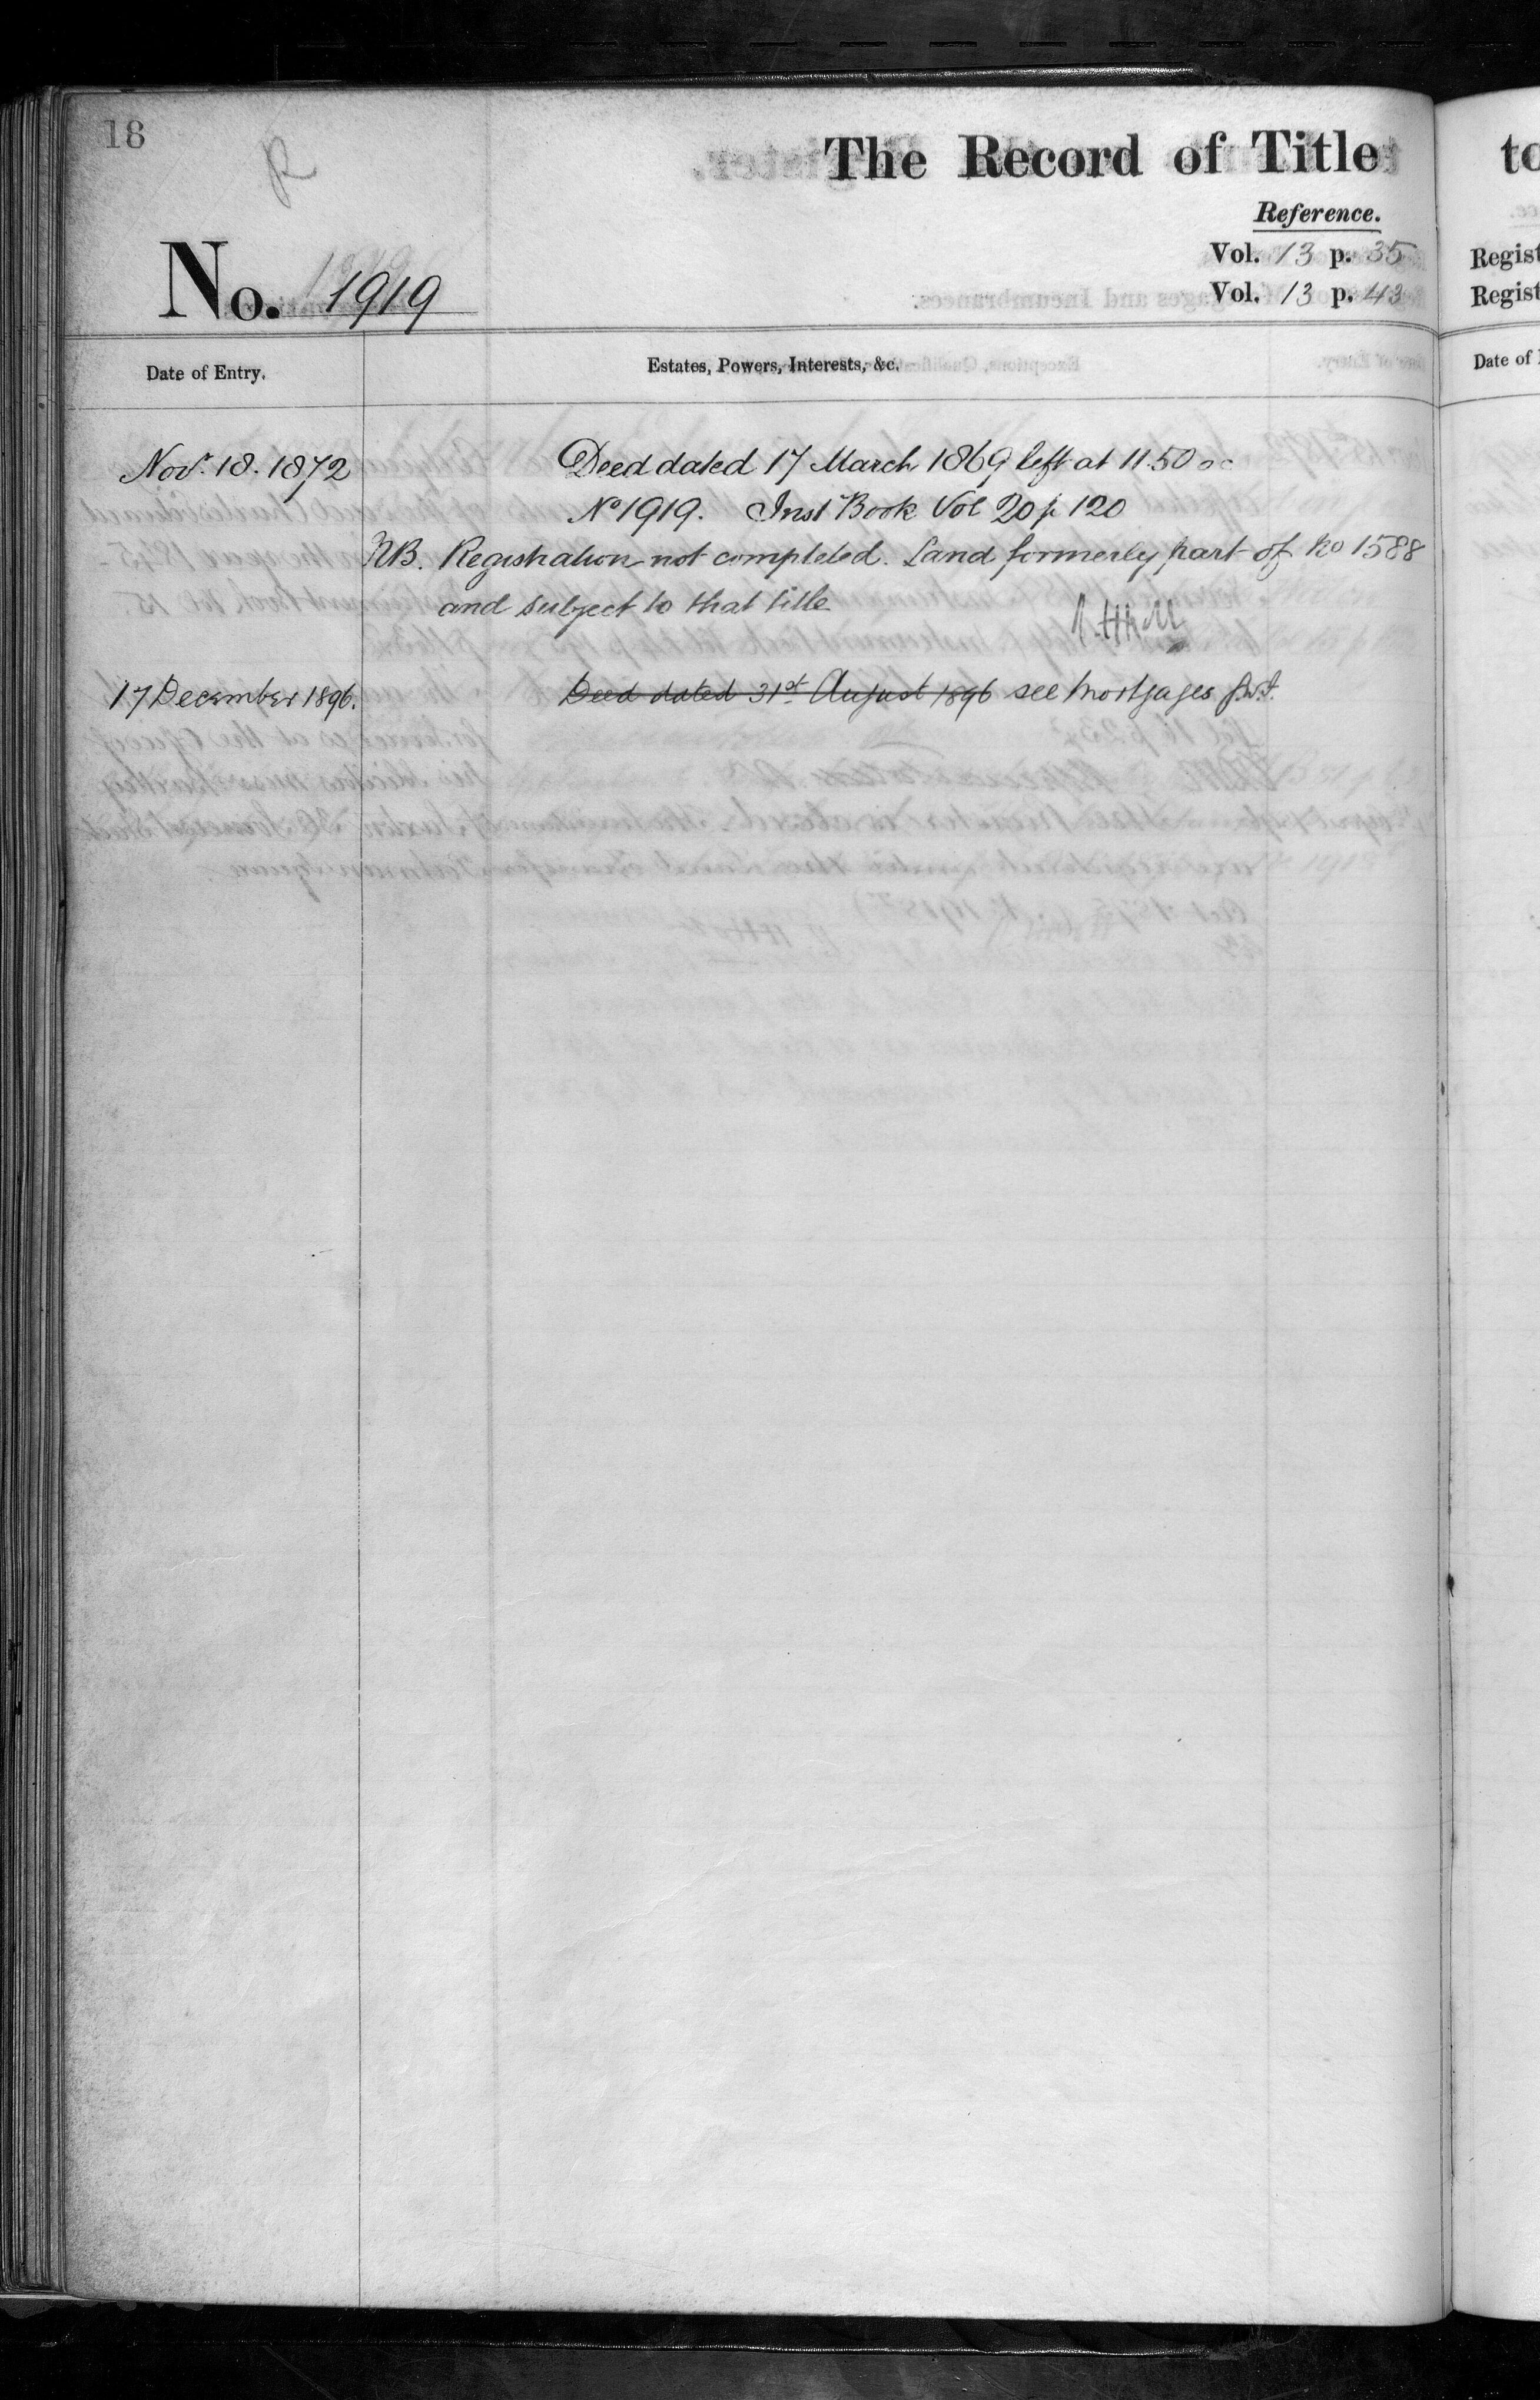 18
R
The Record of Title
to
Reference.
Vol. 13 p. 35
Regist
No. 1919
Vol. 13 p. 43
Regist
Date of Entry.
Estates, Powers, Interests, &c.
Date of
Novr. 18. 1872
Deed dated 17 March 1869 left at 11.50 oc
No 1919. Inst Book Vol 20 p 120
NB. Registration not completed. Land formerly part of No 1588
and subject to that title
17 December 1896.
Deed dated 31st August 1896 see Mortgages